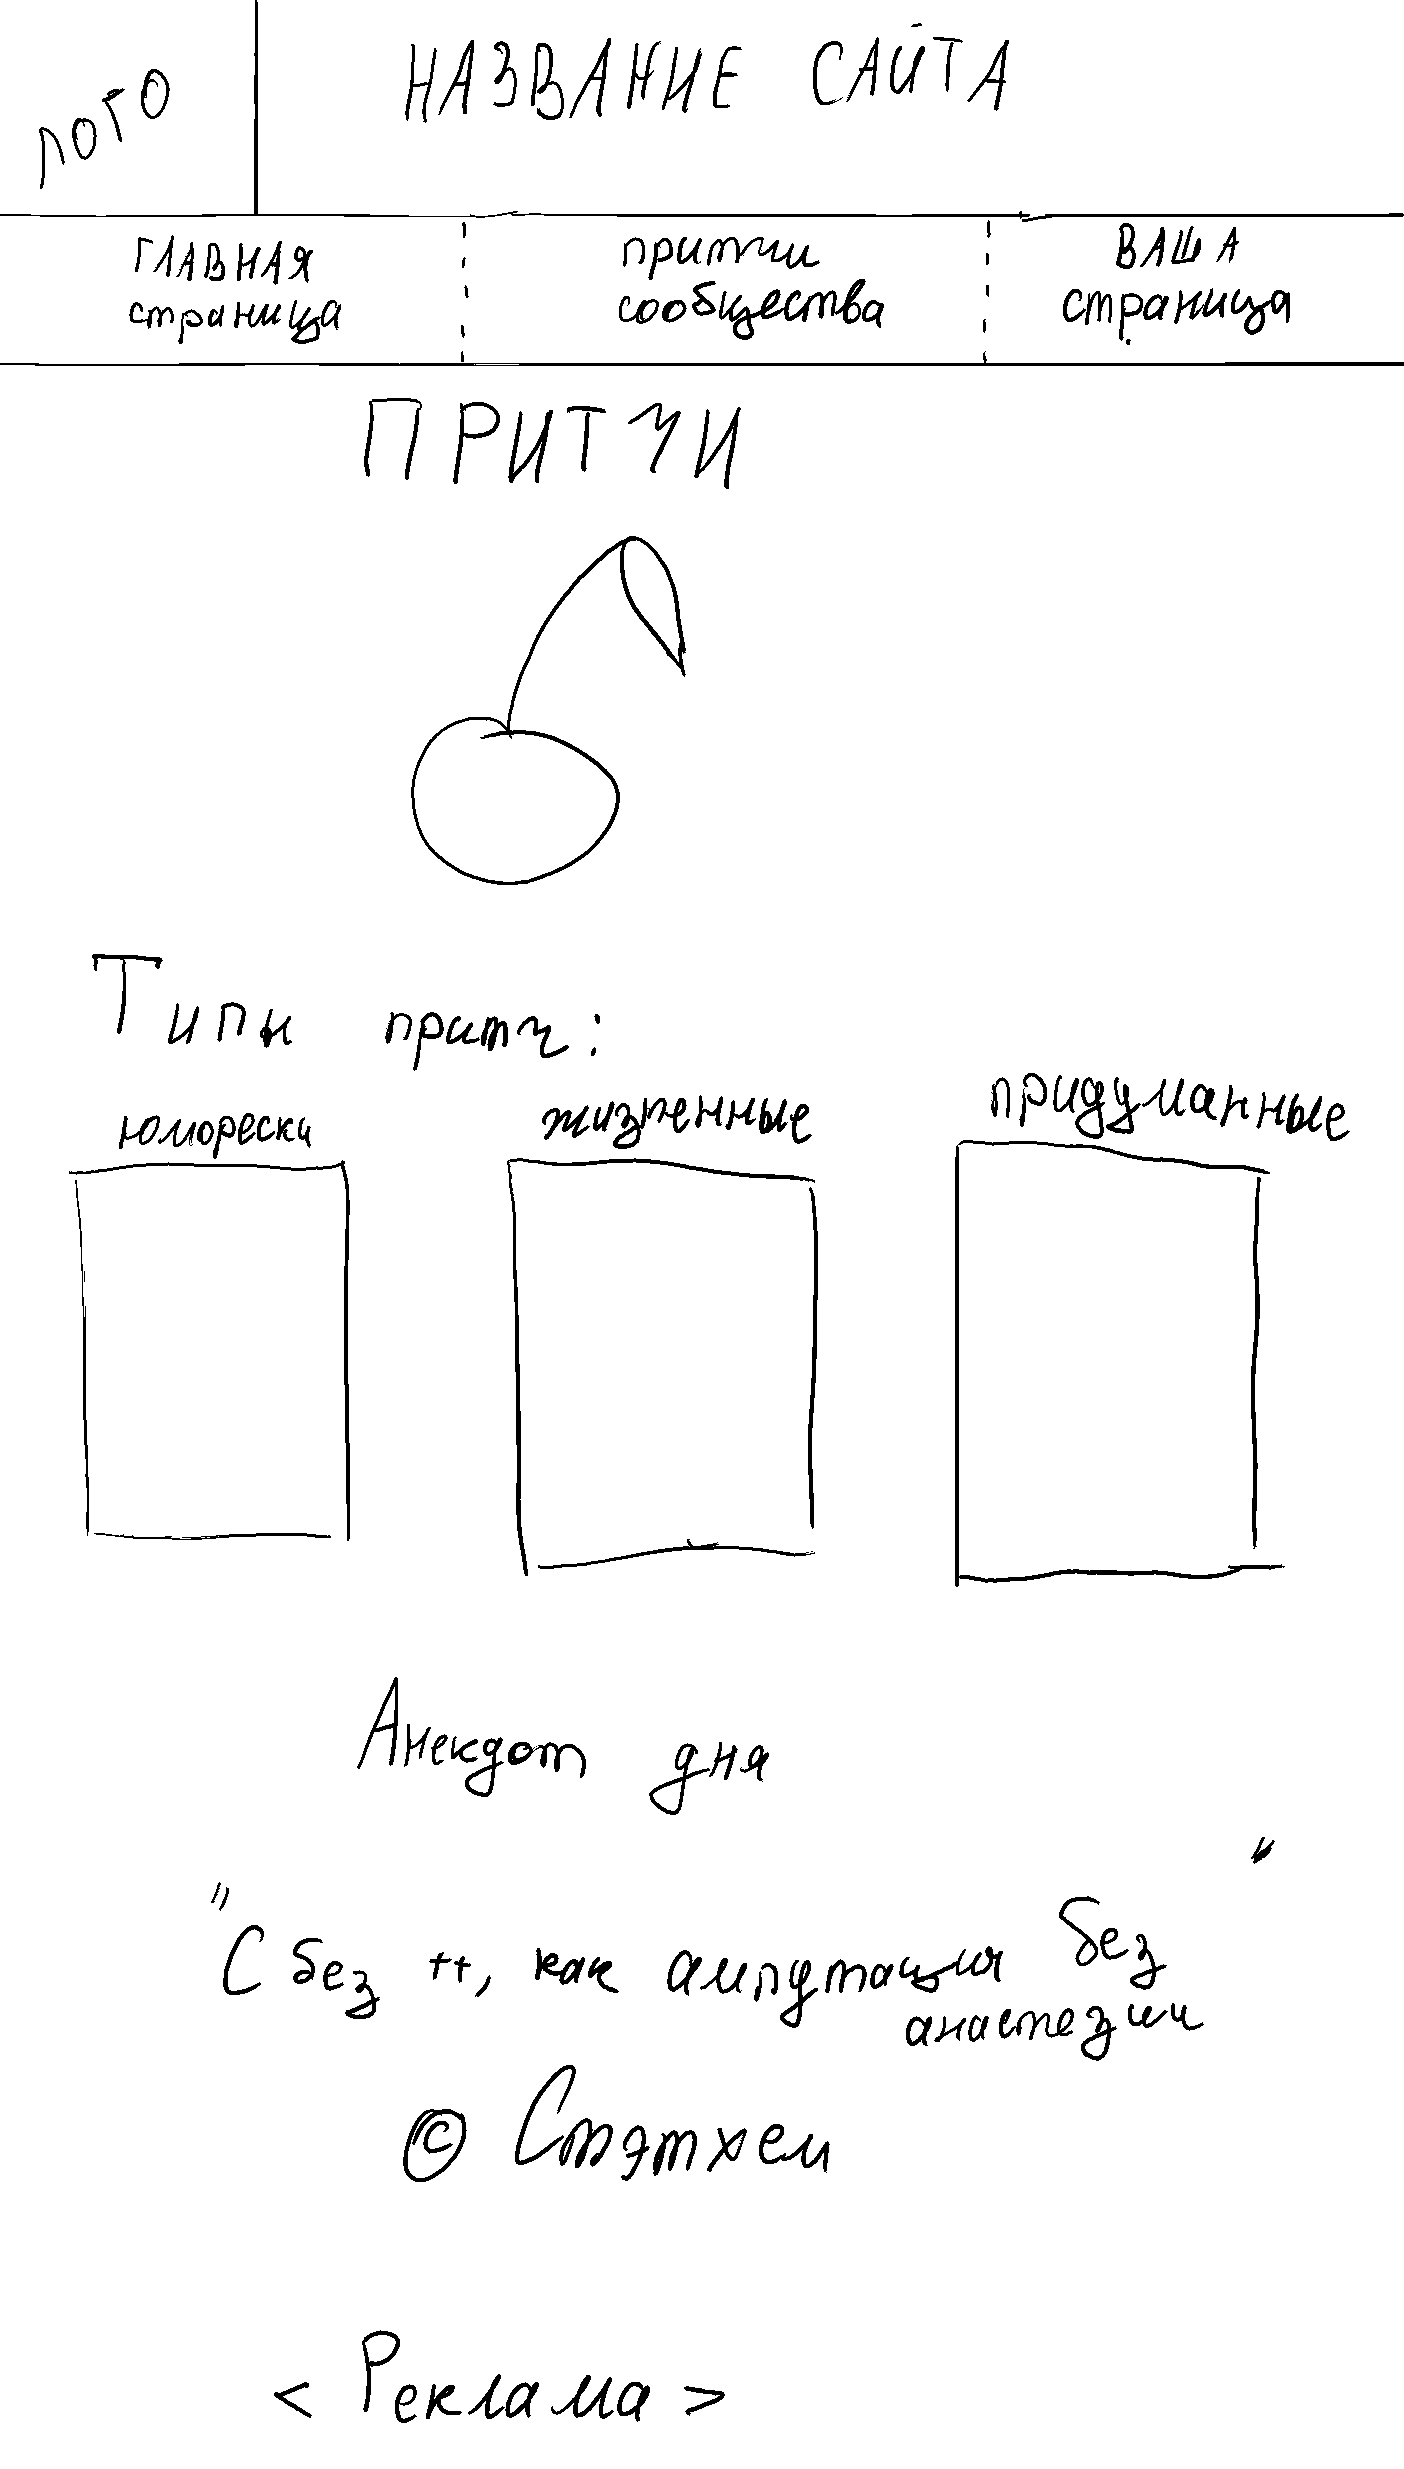 ЛОГО
НАЗВАНИЕ САЙТА
ГЛАВНАЯ
страница
притчи
сообщества
ВАША
страница
ПРИТЧИ
Типы притч:
юморески
жизненные
придуманные
Анекдот дня
"С без ++, как ампутация без
анастезии"
© Стэтхем
< Реклама >